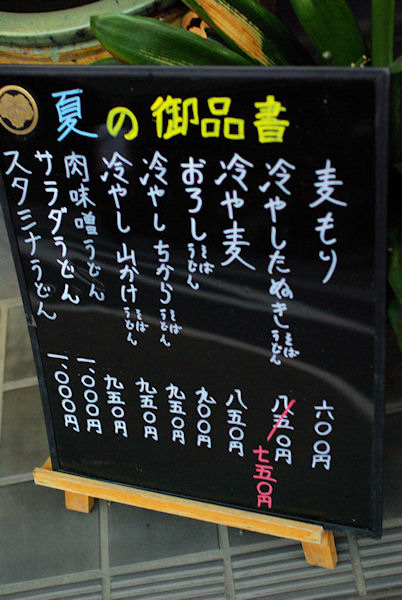 夏の御品書
麦もり 六〇〇円
冷やしたぬき そば うどん 八五〇円 七五〇円
冷や麦 八五〇円
おろし そば うどん 九〇〇円
冷やしちから そば うどん 九五〇円
冷やし山かけ そば うどん 九五〇円
肉味噌うどん 九五〇円
サラダうどん 一、〇〇〇円
スタミナうどん 一、〇〇〇円